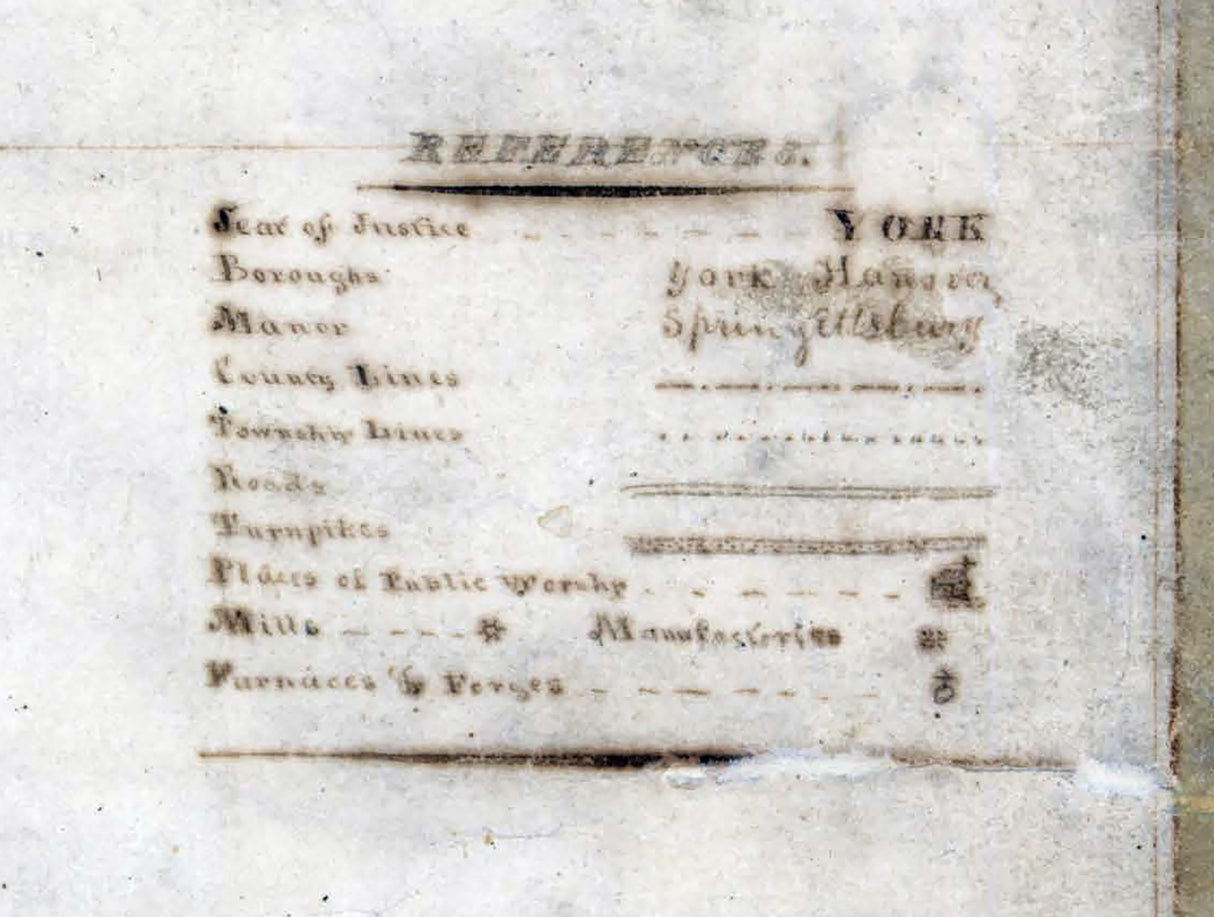 REFERENCES.
Seat of Justice - - - - - - - YORK
Boroughs York Hanover,
Manor Springettsbury
County Lines
Township Lines
Roads
Turnpikes
Places of Public Worship - - - - - -
Mills - - - - Manufactories
Furnaces & Forges - - - - - - -